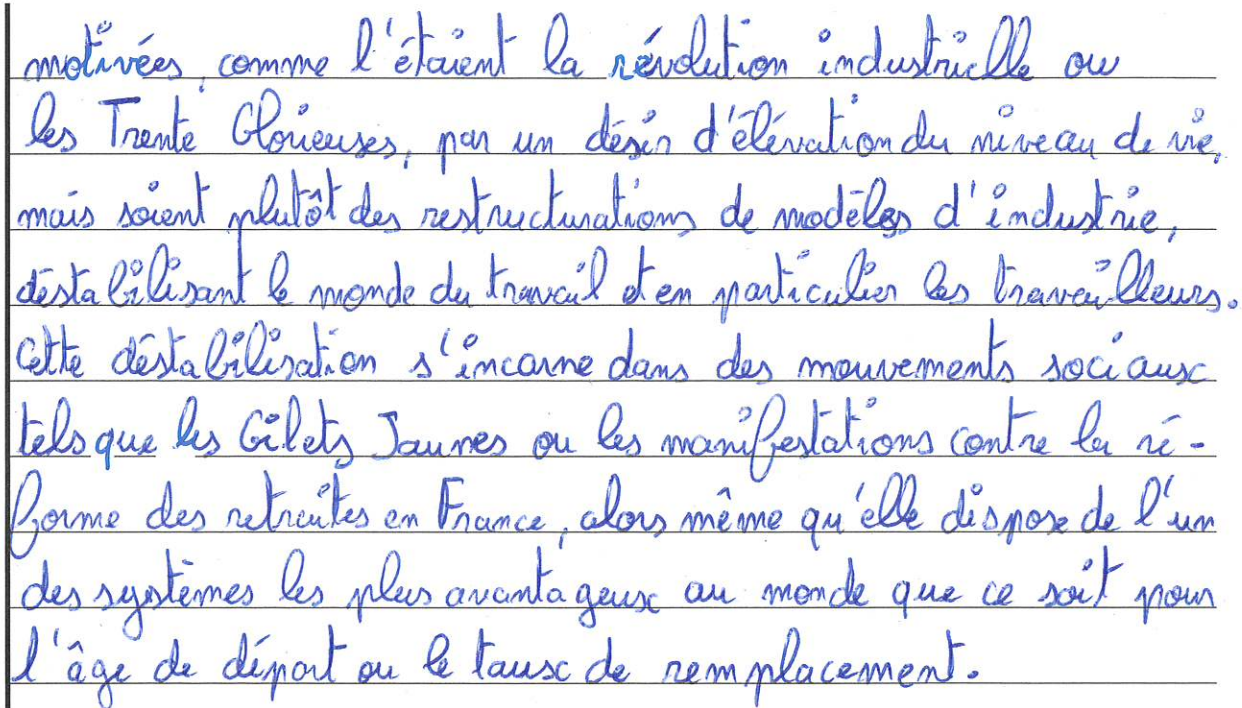 motivées, comme l'étaient la révolution industrielle ou
les Trente Glorieuses, par un désir d'élévation du niveau de vie,
mais soient plutôt des restructurations de modèles d'industrie,
déstabilisant le monde du travail et en particulier les travailleurs.
Cette déstabilisation s'incarne dans des mouvements sociaux
tels que les Gilets Jaunes ou les manifestations contre la ré-
forme des retraites en France, alors même qu'elle dispose de l'un
des systèmes les plus avantageux au monde que ce soit pour
l'âge de départ ou le taux de remplacement.